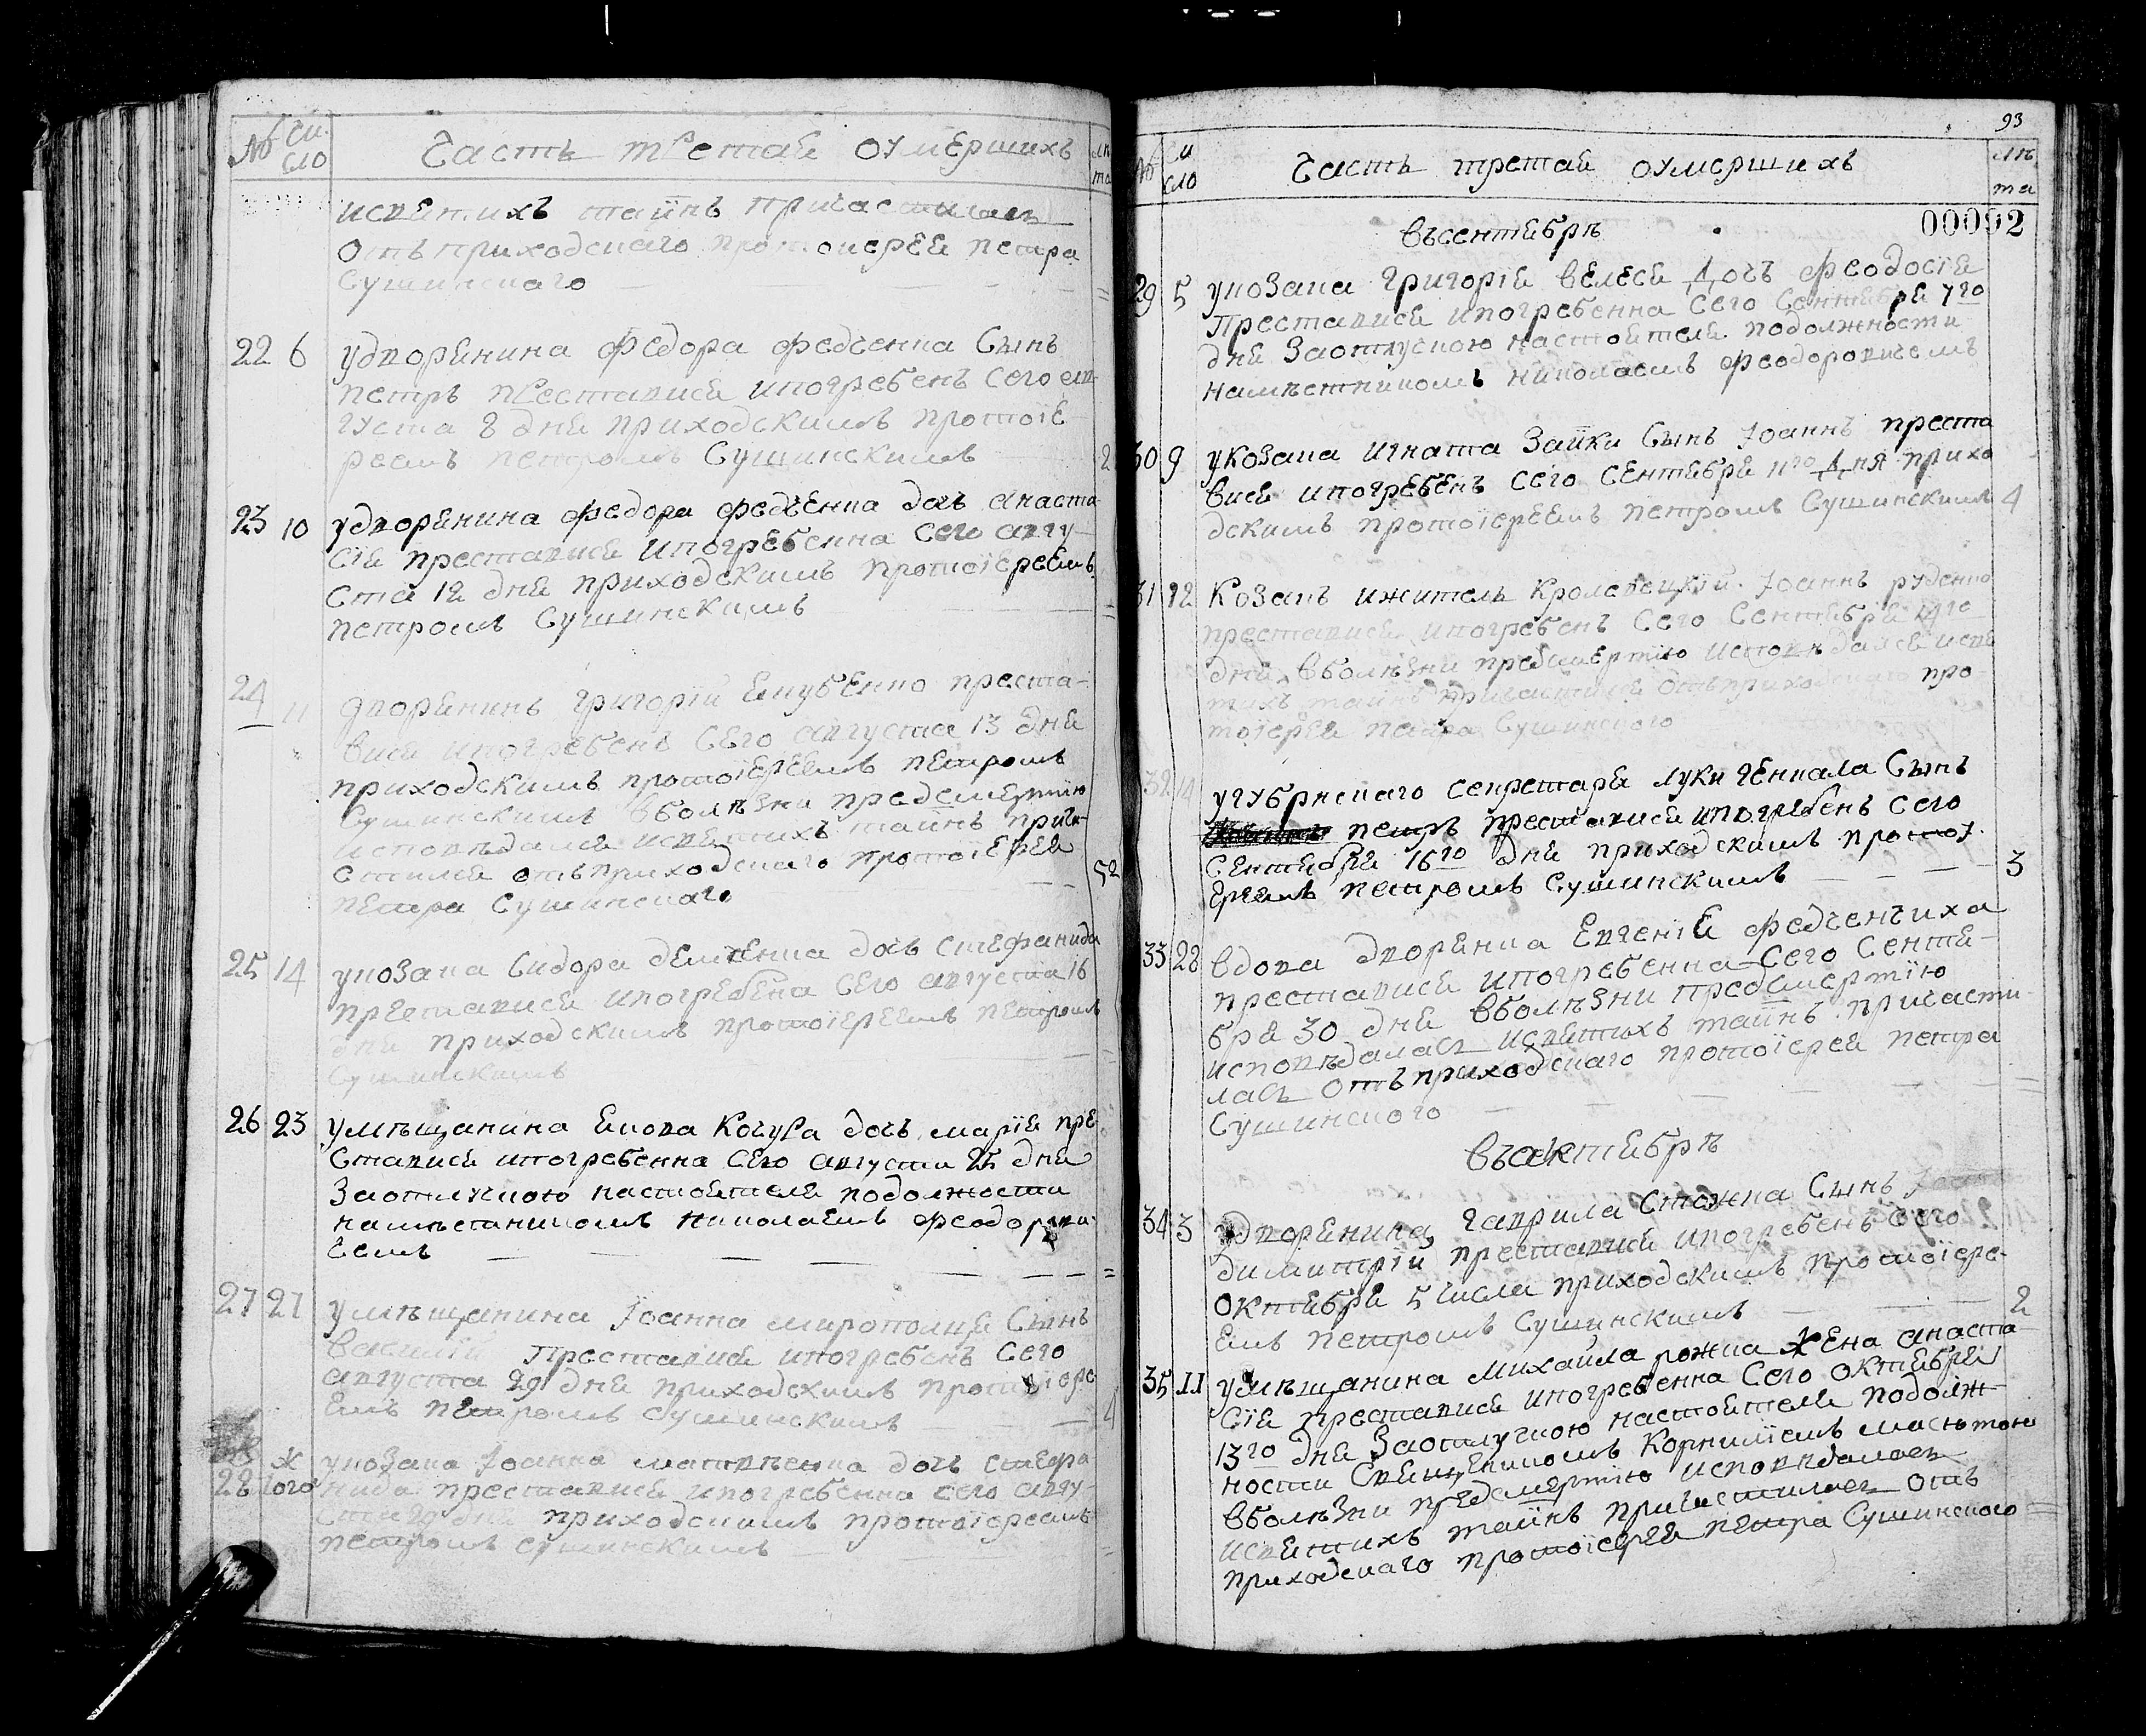 № Чи
сло
Часть третая оумершихъ
лѣ
та
исвятихъ таинъ причастилась
отъ приходскаго протоиерея петра
Сушинскаго
22 6 удворянина федора федченка Сынъ
петръ преставися ипогребенъ сего ав-
густа 8 дня приходскимъ протоіе-
реемъ петромъ Сушинскимъ 2
23 10 удворянина федора федченка дочъ анаста-
сія преставися ипогребенна сего авгу-
ста 12 дня приходскимъ протоіереемъ
петромъ Сушинскимъ =
24 11 дворянинъ григорій Якубенко преста-
вися ипогребенъ сего августа 13 дня
приходскимъ протоіереемъ петромъ
Сушинскимъ вболѣзни предсмертію
исповѣдался исвятихъ таинъ прича-
стился отъ приходскаго протоіерея
петра Сушинскаго 52
25 14 укозака Сидора демченка дочъ стефанида
преставися ипогребена сего августа 16
дня приходскимъ протоіереемъ петромъ
Сушинскимъ =
26 23 умѣщанина Якова Кочура дочъ марія пре-
ставися ипогребенна сего августа 25 дня
Заотлучкою настоятеля подолжности
намѣстникомъ николаемъ феодорови-
чемъ =
27 27 умѣщанина Іоанна мирополця Сынъ
василій преставися ипогребенъ сего
августа 29 дня приходскимъ протоіере
емъ петромъ сушинскимъ 4
28 того ж укозака Іоанна матвѣенка дочъ стефа
нида преставися ипогребенна сего авгу-
ста 29 дня приходскимъ протоіереемъ
петромъ сушинскимъ =
93
№ Чи
сло
Часть третая оумершихъ
лѣ
та
00092
въсентябрѣ
29 5 укозака григорія велеся Дочъ феодосія
преставися ипогребенна сего Сентября 7го
дня Заотлучкою настоятеля подолжности
намѣстникомъ николаемъ феодоровичемъ
30 9 укозака игната Зайки Сынъ Іоаннъ преста
вися ипогребенъ сего Сентября 11го Дня прихо
дскимъ протоіереемъ петромъ Сушинскимъ 4
31 12 Козакъ ижитель Кролевецкій Іоаннъ руденко
преставися ипогребенъ сего Сентября 14го
дня вболѣзни предсмертію исповѣдался исвя
тихъ таинъ причастился отъ приходскаго про-
тоіерея петра Сушинского
32 14 угубрнскаго секретаря луки ченкала Сынъ
петръ преставися ипогребенъ сего
Сентября 16го дня приходскимъ протоі-
ереемъ петромъ Сушинскимъ 3
33 28 вдова дворянка Евгенія федченчиха
преставися ипогребенна Сего Сентя-
бря 30 дня вболѣзни предсмертію
исповѣдалась исвятихъ таинъ причасти-
лась отъ приходскаго протоіерея петра
Сушинского =
въоктябрѣ
34 3 удворянина гаврила Стожка Сынъ
димитрій преставися ипогребенъ сего
Октября 5 числа приходскимъ протоіере-
емъ петромъ Сушинскимъ 2
35 11 умѣщанина михаила рожка жена анаста-
сія преставися ипогребенна Сего октября
13го дня Заотлучкою настоятеля подолж-
ности Священникомъ Корниліемъ
вболѣзни предсмертію исповѣдалась
исвятихъ таинъ причастилась отъ
приходскаго протоіерея петра Сушинского =